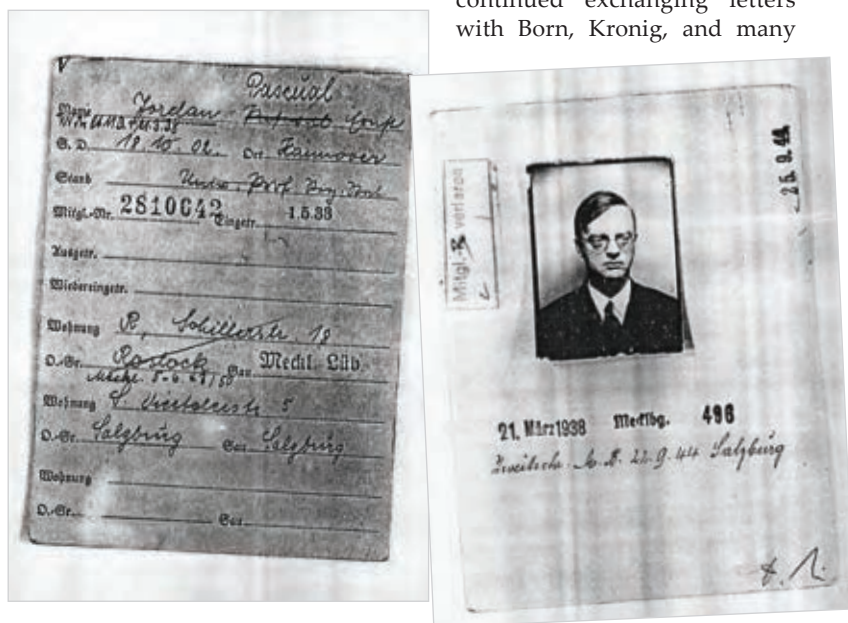 continued exchanging letters
with Born, Kronig, and many
V
Pascual
Name Jordan
G. D. 18.10.02. Ort Hannover
Stand Univ. Prof.
Mitgl.-Nr. 2810642 Eingetr. 1.5.33
Ausgetr.
Wiedereingetr.
Wohnung R, Schillerstr. 18
O.-Gr. Rostock Gau Meckl.-Lüb.
Wohnung S.
O.-Gr. Salzburg Gau Salzburg
Wohnung
O.-Gr. Gau
Mitgl.-B verloren
25. 9. 44
21. März 1938 Mecklbg. 496
22.9.44 Salzburg